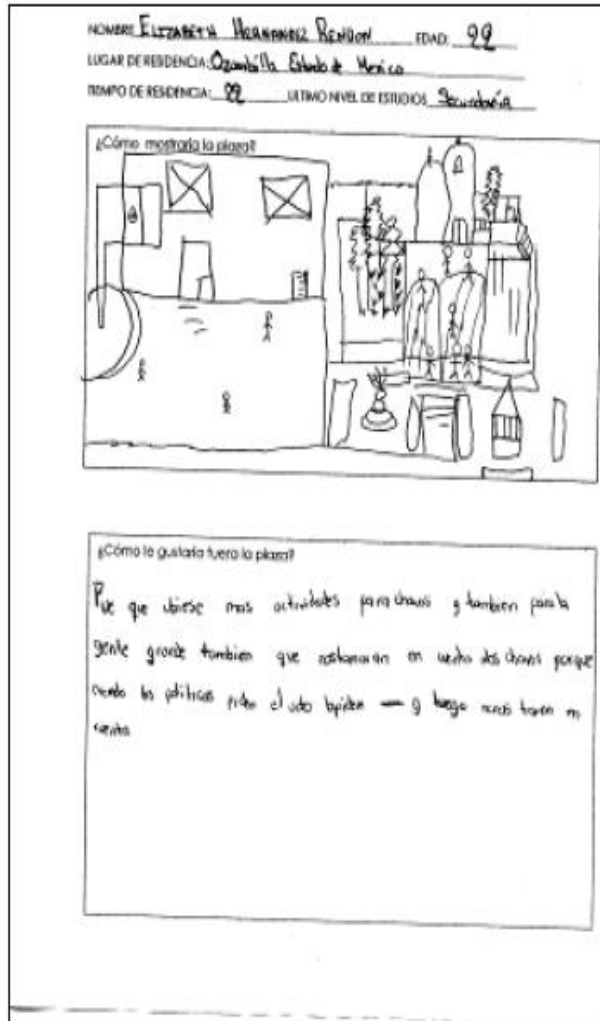 NOMBRE ELIZABETH HERNANDEZ RENDON EDAD: 22
LUGAR DE RESIDENCIA: Ozumbilla Estado de Mexico
TIEMPO DE RESIDENCIA: 22 ULTIMO NIVEL DE ESTUDIOS Secundaria
¿Cómo mostraría la plaza?
¿Cómo le gustaría fuera la plaza?
que ubiese mas actividades para chavos y tambien para la
gente grande tambien que los chavos porque
los politicos piden el voto y luego